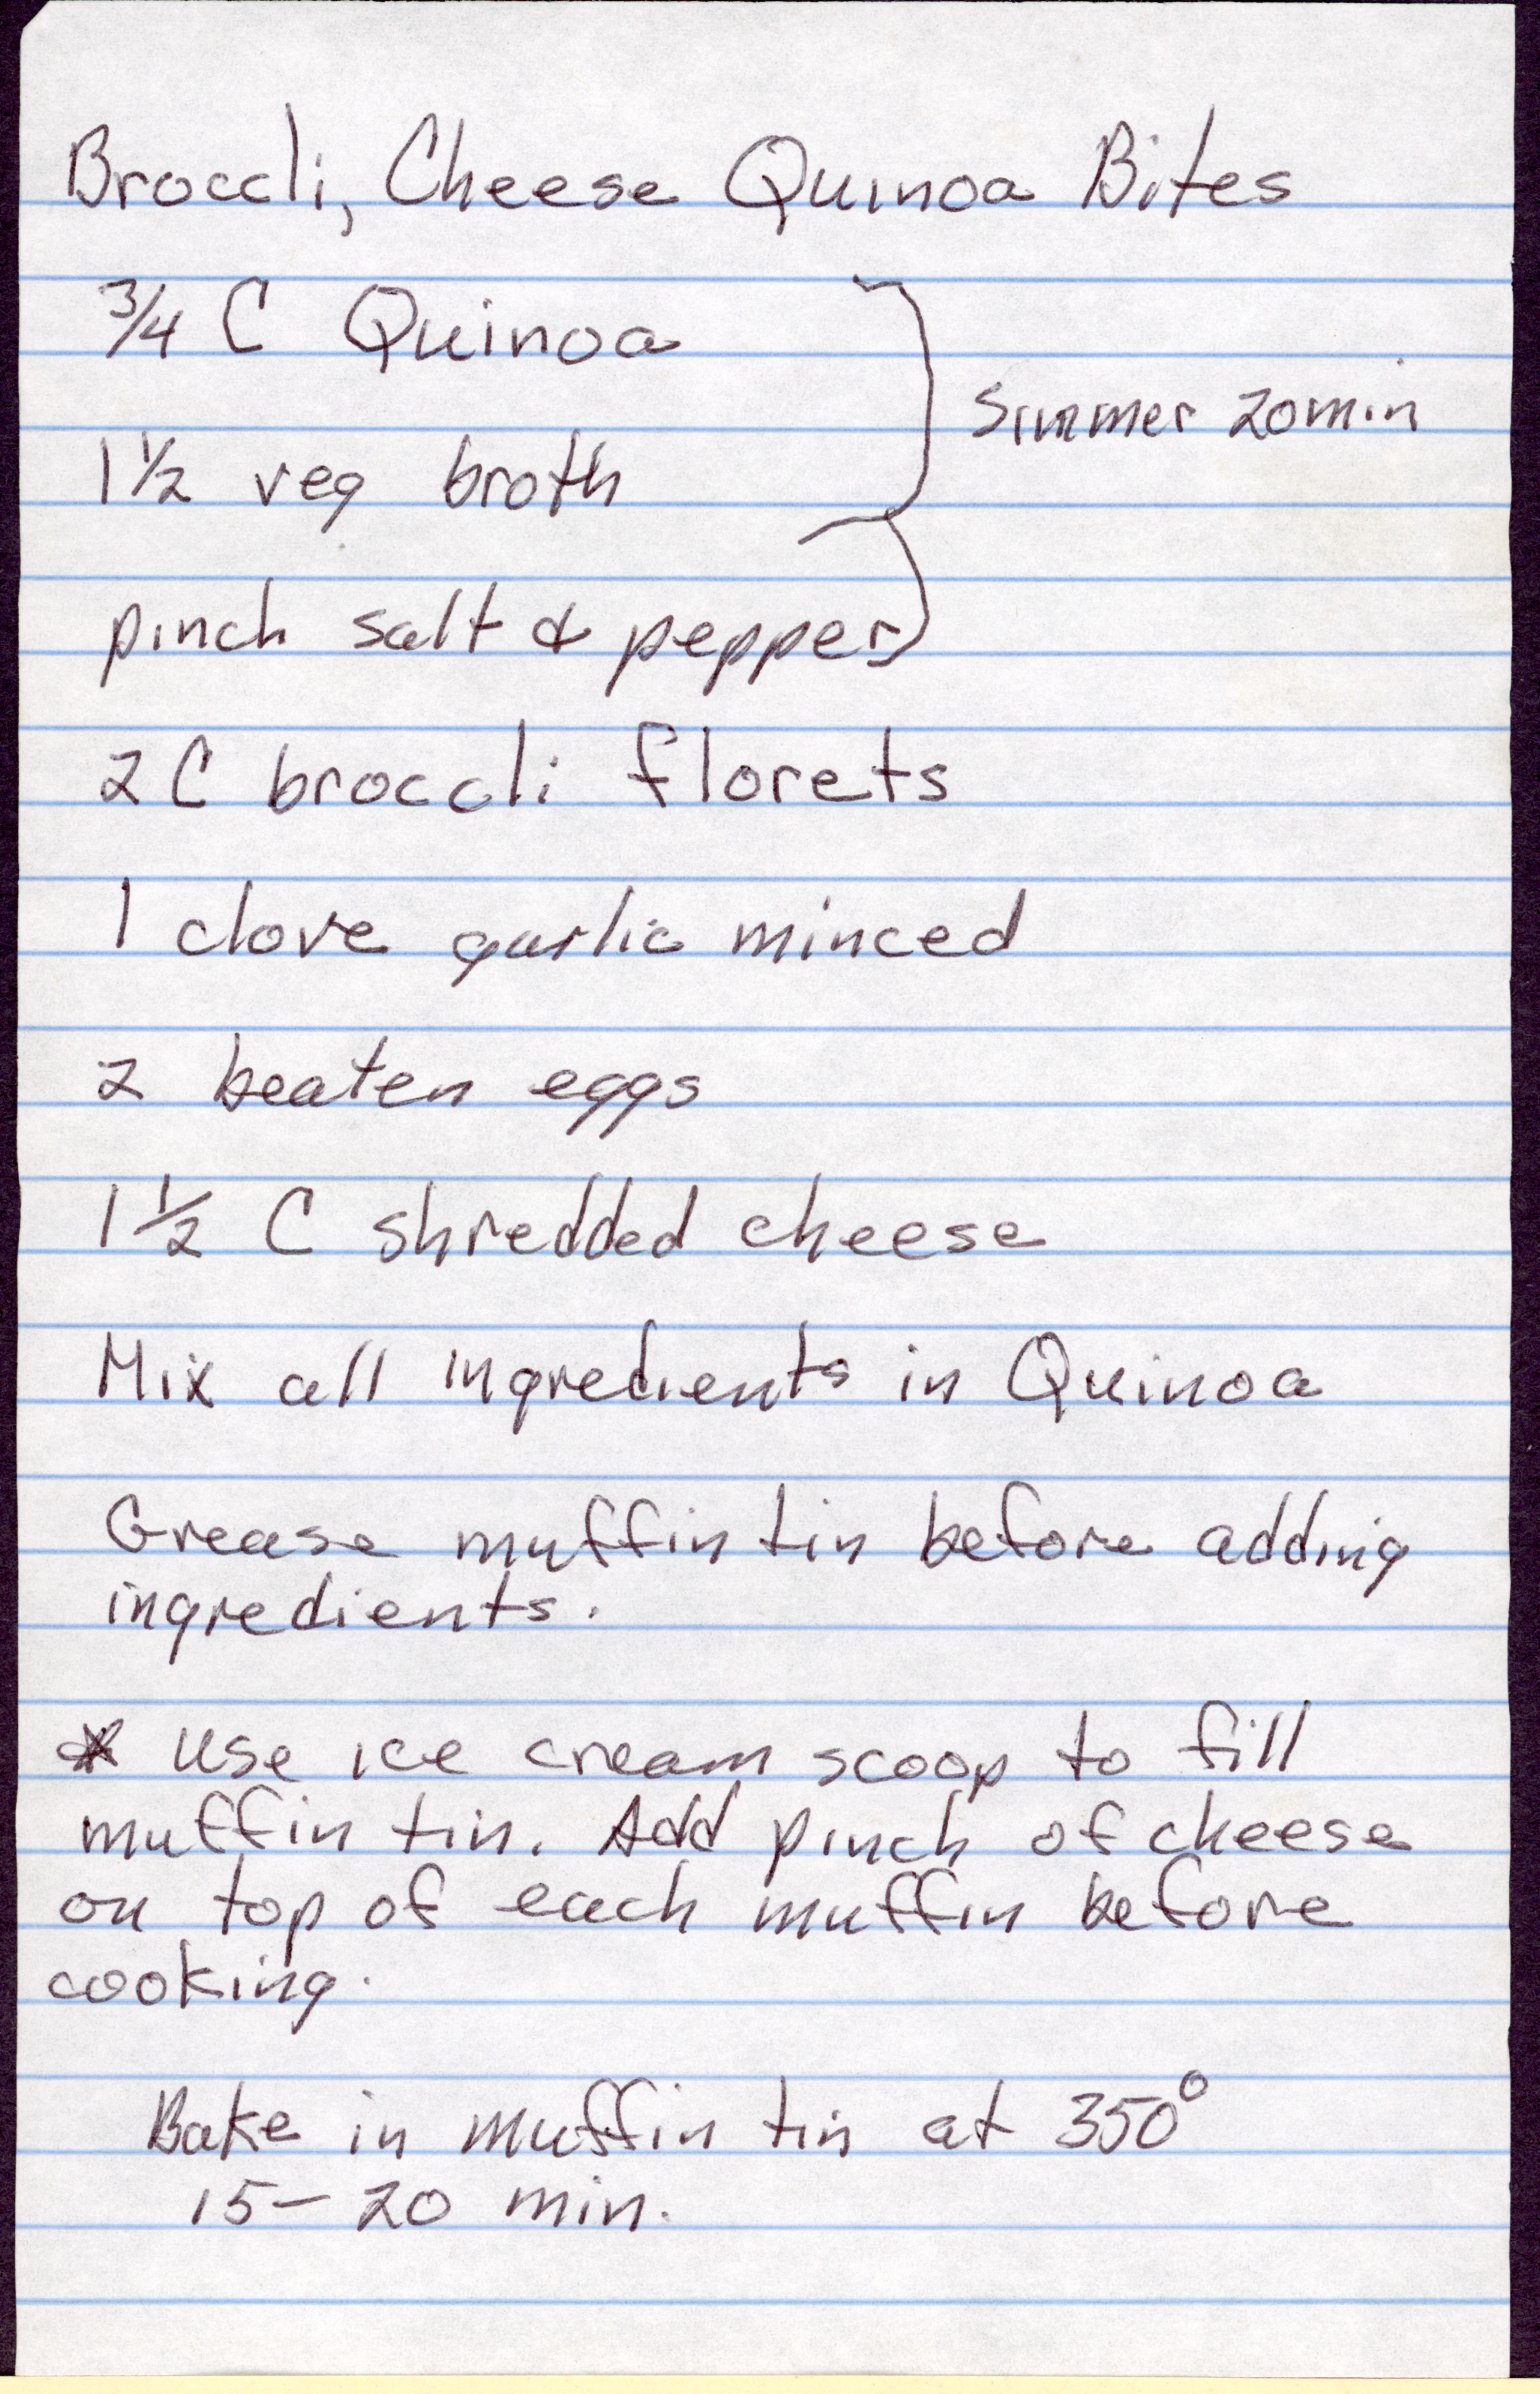 Broccli, Cheese Quinoa Bites
3/4 C Quinoa
simmer 20min
1 1/2 veg broth
pinch salt & pepper
2 C broccli florets
1 clove garlic minced
2 beaten eggs
1 1/2 C shredded cheese
Mix all ingredients in Quinoa
Grease muffin tin before adding
ingredients.
* Use ice cream scoop to fill
muffin tin. Add pinch of cheese
on top of each muffin before
cooking.
Bake in muffin tin at 350°
15-20 min.